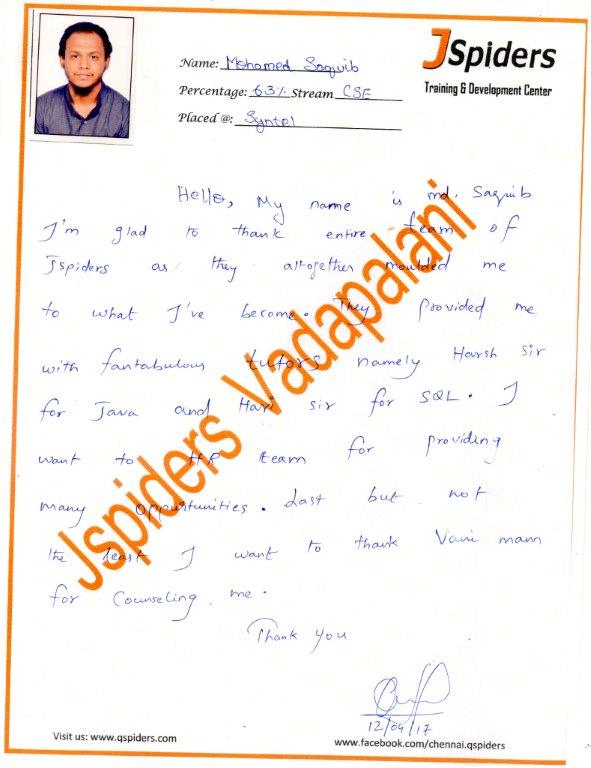 JSpiders
Training & Development Center
Name: Mohamed Saquib
Percentage: 63% Stream CSE
Placed @: Syntel
Hello, My name is md. Saquib
I'm glad to thank entire team of
Jspiders as they altogether moulded me
to what I've become. They provided me
with fantabulous tutors namely Harsh sir
for Java and Hari sir for SQL. I
want to HR team for providing
many opportunities. Last but not
the least I want to thank Vani mam
for Counseling me.
Thank you
12/04/17
Jspiders Vadapalani
Visit us: www.qspiders.com
www.facebook.com/chennai.qspiders